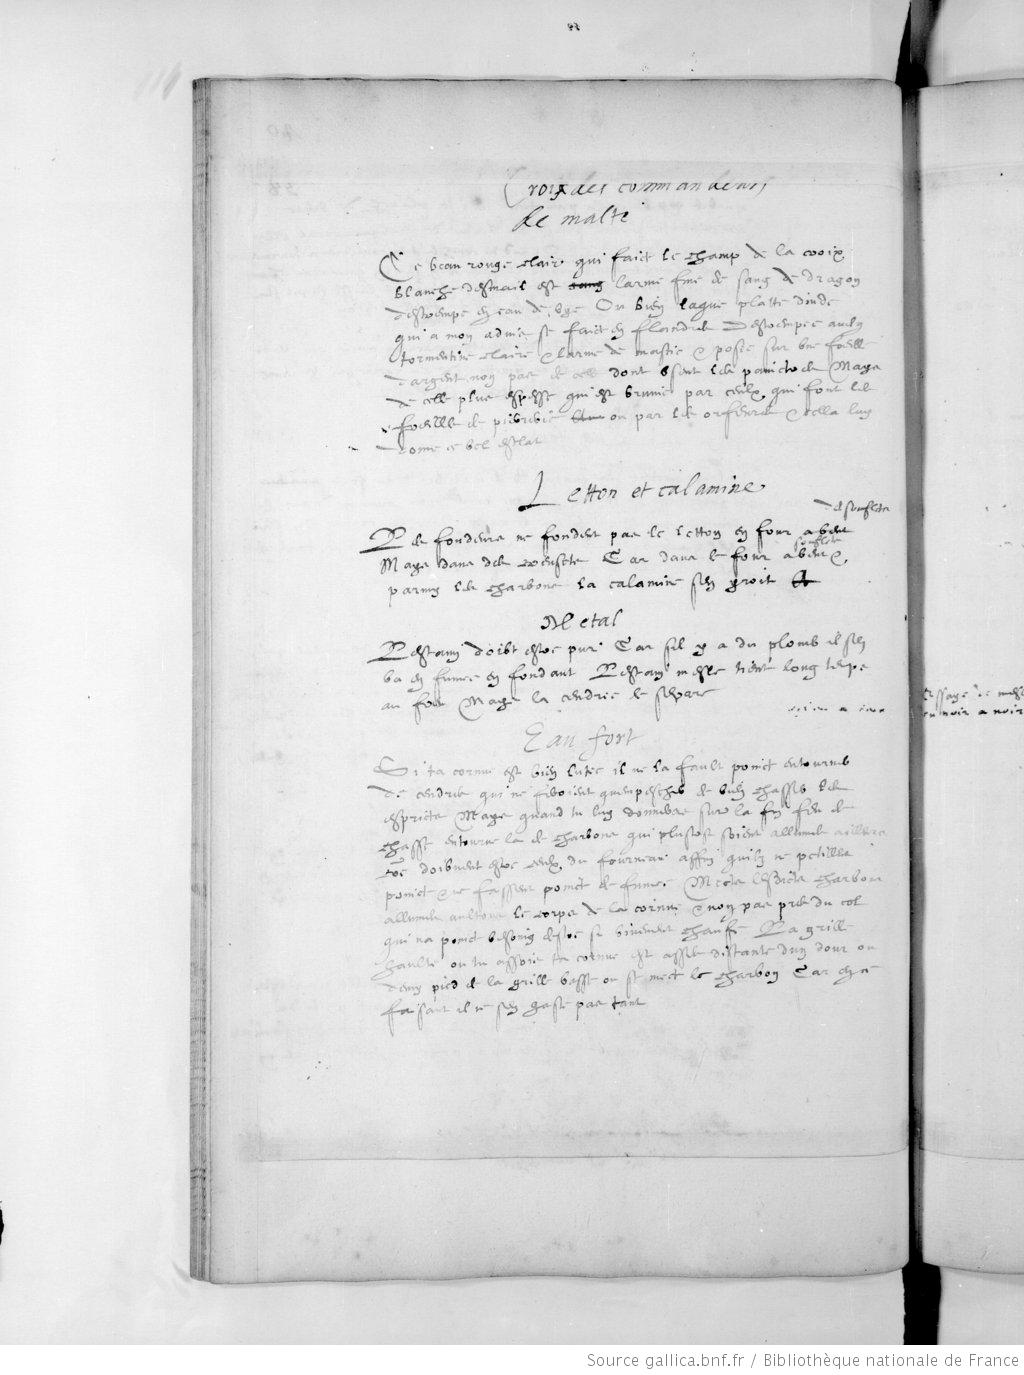 Croix des commandeurs
de malte
Ce beau rouge clair qui faict le champ de la croix
blanche desmail est sang larme fine de sang de dragon
destrempe en eau de vye Ou bien laque platte dinde
qui a mon advis se faict en flandres Destrempee avecq
tormentine claire & larme de mastic & posee sur une foeille
dargent non pas de celle dont usent les painctres Mays
de celle plus espesse qui est brunie par ceulx qui font les
foeilles de pierrerie ou par les orfevres & cella luy
donne ce bel esclat
Letton et calamine
de soufflets
Les fondeurs ne fondent pas le letton en four a vent
soufflets
Mays dans des creusets Car dans le four a vent &
parmy les charbons la calamine sen yroit
Metal
Lestaim doibt estre pur Car sil y a du plomb il sen
va en fumee en fondant Lestaim mesle tient long temps
au fort Mays la cendree le separe
Eau fort
Si ta cornue est bien lutee il ne la fault poinct entourner
de cendres qui ne serviroient quempescher de bien chasser les
esprits Mays quand tu luy donneras sur la fin feu de
chasse entoure la de charbons qui plustost soient allumes ailleurs
Et doibvent estre ceulx du fourneau affin quilz ne petillent
poinct & ne facent poinct de fumee Mects lesdicts charbons
allumes aultour le corps de la cornue & non pas pres du col
qui na poinct besoing destre si vivement chaufe La grille
haulte ou tu assoirs ta cornue est asses distante dun dour ou
demy pied de la grille basse ou se mect le charbon Car en ce
faisant il ne sen gaste pas tant
noir a noir
Source gallica.bnf.fr / Bibliothèque nationale de France